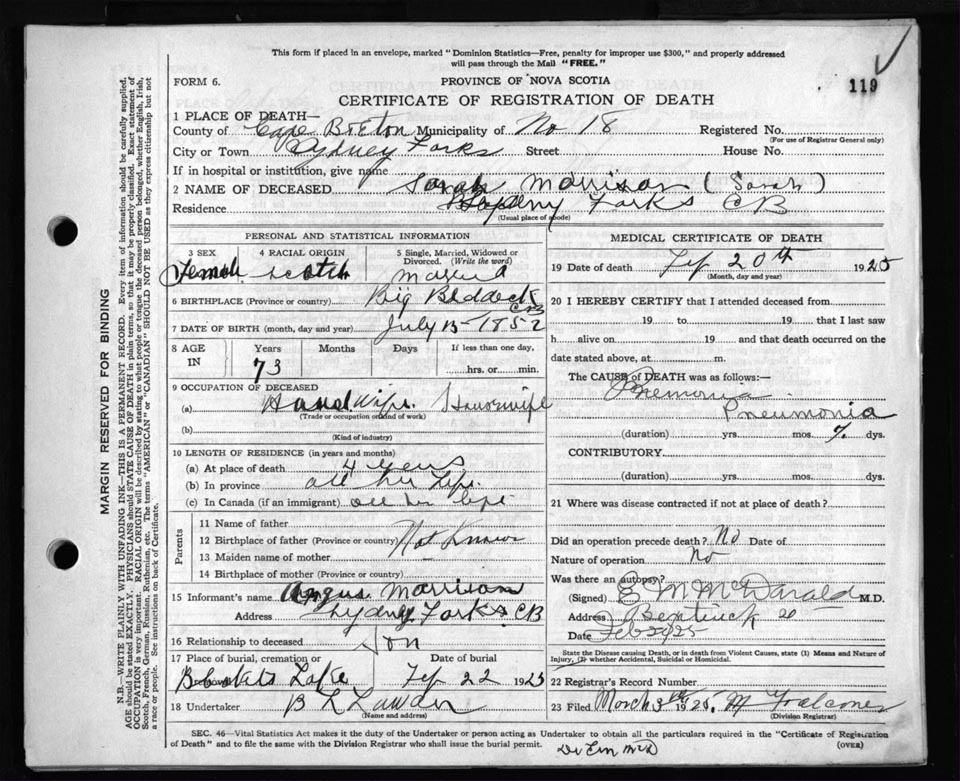 This form if placed in an envelope, marked "Dominion Statistics—Free, penalty for improper use $300," and properly addressed
will pass through the Mail "FREE."
FORM 6.
PROVINCE OF NOVA SCOTIA
119
CERTIFICATE OF REGISTRATION OF DEATH
1 PLACE OF DEATH—
County of Cape Breton Municipality of No 18 Registered No.
(For use of Registrar General only)
City or Town Sydney Forks Street House No.
If in hospital or institution, give name
2 NAME OF DECEASED Sarah Morrison (Sarah)
Residence Sydney Forks CB
(Usual place of abode)
PERSONAL AND STATISTICAL INFORMATION
3 SEX 4 RACIAL ORIGIN 5 Single, Married, Widowed or Divorced. (Write the word)
Female Scotch Married
6 BIRTHPLACE (Province or country) Big Beddeck CB
7 DATE OF BIRTH (month, day and year) July 15 - 1852
8 AGE IN Years Months Days If less than one day,
73 hrs. or min.
9 OCCUPATION OF DECEASED
(a) Housewife
(Trade or occupation or kind of work)
(b)
(Kind of industry)
10 LENGTH OF RESIDENCE (in years and months)
(a) At place of death 4 years
(b) In province all her life
(c) In Canada (if an immigrant) all her life
Parents
11 Name of father
12 Birthplace of father (Province or country) Not Known
13 Maiden name of mother
14 Birthplace of mother (Province or country)
15 Informant's name Angus Morrison
Address Sydney Forks CB
16 Relationship to deceased Son
17 Place of burial, cremation or Date of burial
Lake Feb 22 1925
18 Undertaker B L
(Name and address)
MEDICAL CERTIFICATE OF DEATH
19 Date of death Feb 20th 1925
(Month, day and year)
20 I HEREBY CERTIFY that I attended deceased from
19 to 19 that I last saw
h alive on 19 and that death occurred on the
date stated above, at m.
The CAUSE of DEATH was as follows:—
Pnemonia
Pneumonia
(duration) yrs. mos. 7. dys.
CONTRIBUTORY
(duration) yrs. mos. dys.
21 Where was disease contracted if not at place of death?
Did an operation precede death? No Date of
Nature of operation No
Was there an autopsy?
(Signed) E M McDonald M.D.
Address
Date Feb 22/25
State the Disease causing Death, or in death from Violent Causes, state (1) Means and Nature of
Injury, (2) whether Accidental, Suicidal or Homicidal.
22 Registrar's Record Number
23 Filed March 3rd 1925. M
(Division Registrar)
SEC. 46—Vital Statistics Act makes it the duty of the Undertaker or person acting as Undertaker to obtain all the particulars required in the "Certificate of Registration
of Death" and to file the same with the Division Registrar who shall issue the burial permit.
(OVER)
MARGIN RESERVED FOR BINDING
N.B.—WRITE PLAINLY WITH UNFADING INK—THIS IS A PERMANENT RECORD. Every item of information should be carefully supplied.
AGE should be stated EXACTLY. PHYSICIANS should STATE CAUSE OF DEATH in plain terms, so that it may be properly classified. Exact statement of
OCCUPATION is very important. RACIAL ORIGIN will be described by stating to what people or tongue the deceased person belonged, whether English, Irish,
Scotch, French, German, Russian, Ruthenian, etc. The terms "AMERICAN" or "CANADIAN" SHOULD NOT BE USED as they express citizenship but not
a race or people. See instructions on back of Certificate.